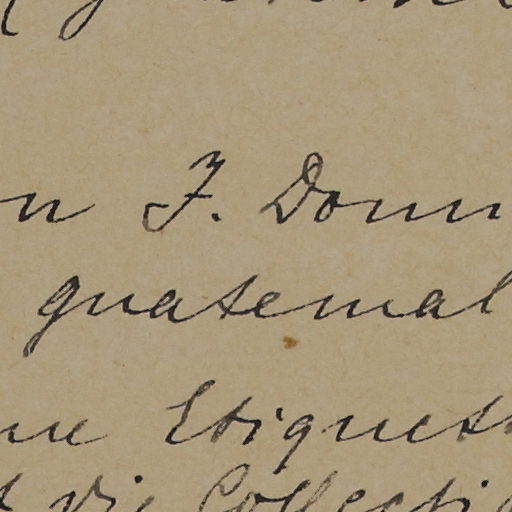 n F. Donn
guatemal
ne Etiquett
die Collecti